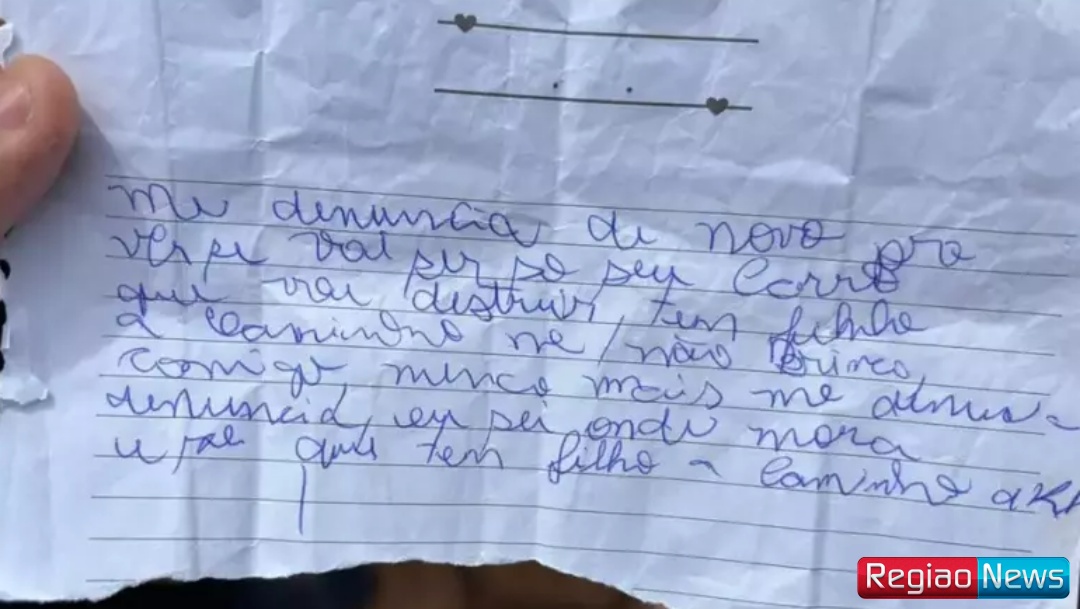 me denuncia de novo pra
ver se vai ser so seu Carro
que vai destruir, tem filho
a Caminho né, não Brinca
comigo, nunca mais me denun-
denuncia, eu sei onde mora
e sei que tem filho a Caminho
Regiao News